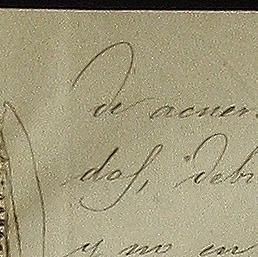 de acuer
dos, debi
y no en